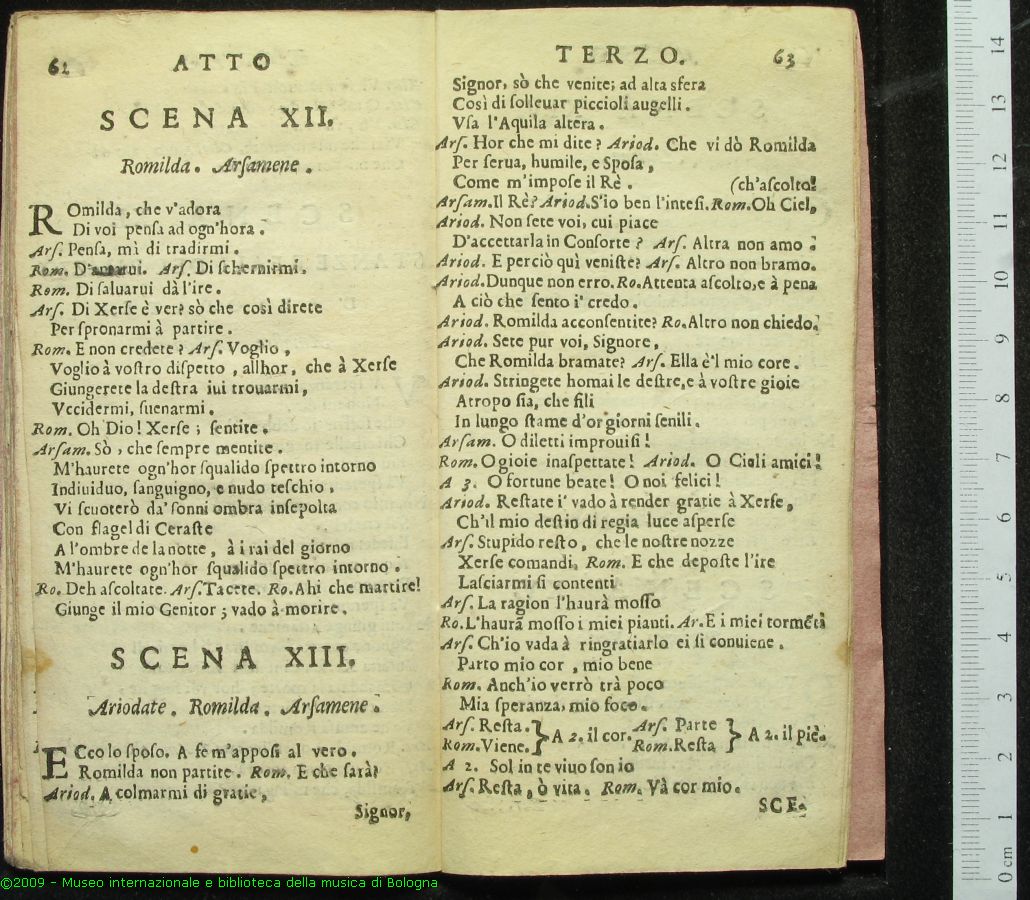 62 ATTO
SCENA XII.
Romilda. Arsamene.
ROmilda, che v'adora
Di voi pensa ad ogn'hora.
Ars. Pensa, mì di tradirmi.
Rom. D' Ars. Di schernirmi.
Rom. Di saluarui dà l'ire.
Ars. Di Xerse è ver? sò che così direte
Per spronarmi à partire.
Rom. E non credete? Ars. Voglio,
Voglio à vostro dispetto, allhor, che à Xerse
Giungerete la destra iui trouarmi,
Vccidermi, suenarmi.
Rom. Oh Dio! Xerse; sentite.
Arsam. Sò, che sempre mentite.
M'haurete ogn'hor squalido spettro intorno
Indiuiduo, sanguigno, e nudo teschio,
Vi scuoterò da' sonni ombra insepolta
Con flagel di Ceraste
A l'ombre de la notte, à i rai del giorno
M'haurete ogn'hor squalido spettro intorno.
Ro. Deh ascoltate. Ars. Tacete. Ro. Ahi che martire!
Giunge il mio Genitor; vado à morire.
SCENA XIII.
Ariodate. Romilda. Arsamene.
ECco lo sposo. A fe m'apposi al vero.
Romilda non partite. Rom. E che sarà?
Ariod. A colmarmi di gratie,
Signor,
TERZO. 63
Signor, sò che venite; ad alta sfera
Così di solleuar piccioli augelli.
Vsa l'Aquila altera.
Ars. Hor che mi dite? Ariod. Che vi dò Romilda
Per serua, humile, e Sposa,
Come m'impose il Rè. (ch'ascolto!
Arsam. Il Rè? Ariod. S'io ben l'intesi. Rom. Oh Ciel,
Ariod. Non sete voi, cui piace
D'accettarla in Consorte? Ars. Altra non amo.
Ariod. E perciò quì veniste? Ars. Altro non bramo.
Ariod. Dunque non erro. Ro. Attenta ascolto, e à pena
A ciò che sento i' credo.
Ariod. Romilda acconsentite? Ro. Altro non chiedo.
Ariod. Sete pur voi, Signore,
Che Romilda bramate? Ars. Ella è'l mio core.
Ariod. Stringete homai le destre, e à vostre gioie
Atropo sia, che fili
In lungo stame d'or giorni senili.
Arsam. O diletti improuisi!
Rom. O gioie inaspettate! Ariod. O Cieli amici!
A 3. O fortune beate! O noi felici!
Ariod. Restate i' vado à render gratie à Xerse,
Ch'il mio destin di regia luce asperse
Ars. Stupido resto, che le nostre nozze
Xerse comandi, Rom. E che deposte l'ire
Lasciarmi si contenti
Ars. La ragion l'haurà mosso
Ro. L'haurà mosso i miei pianti. Ar. E i miei tormẽti
Ars. Ch'io vada à ringratiarlo ei si conuiene.
Parto mio cor, mio bene
Rom. Anch'io verrò trà poco
Mia speranza, mio foco.
Ars. Resta. } A 2. il cor. Ars. Parte } A 2. il piè.
Rom. Viene. Rom. Resta
A 2. Sol in te viuo son io
Ars. Resta, ò vita. Rom. Và cor mio.
SCE.
0 cm 1 2 3 4 5 6 7 8 9 10 11 12 13 14
©2009 - Museo internazionale e biblioteca della musica di Bologna